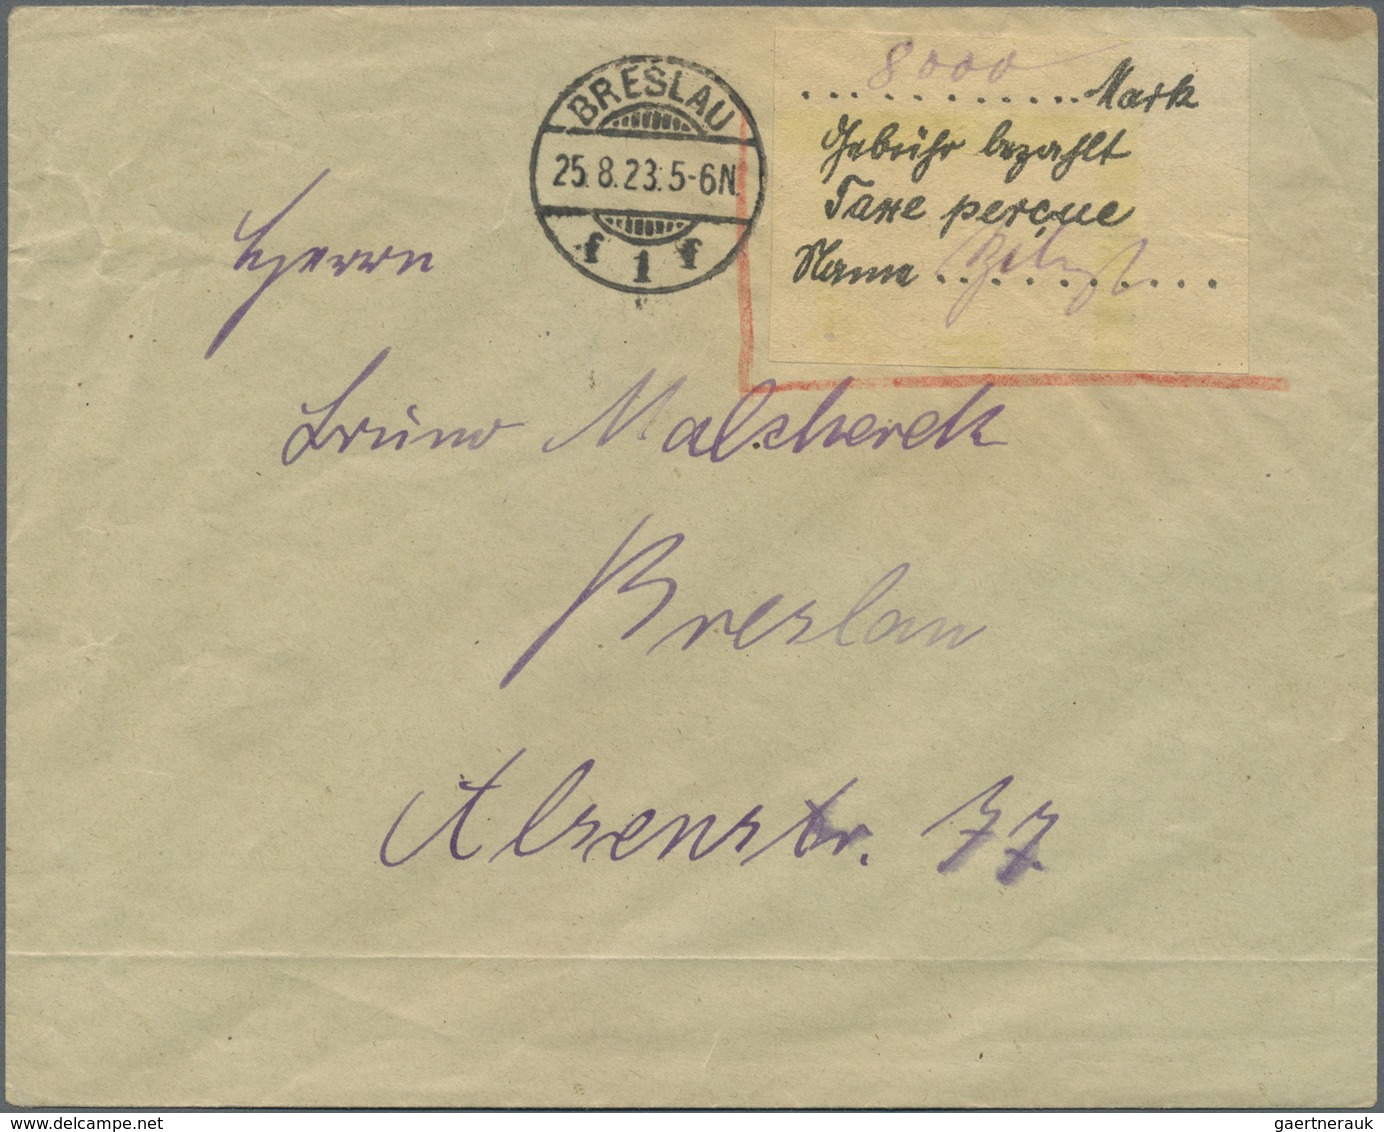 BRESLAU
25.8.23.5-6N.
f 1 f
8000
............Mark
Gebühr bezahlt
Taxe perçue
Name ............
Herrn
Bruno Malscherek
Breslau
Alsenstr. 77.
gaertnerauk @ www.delcampe.net